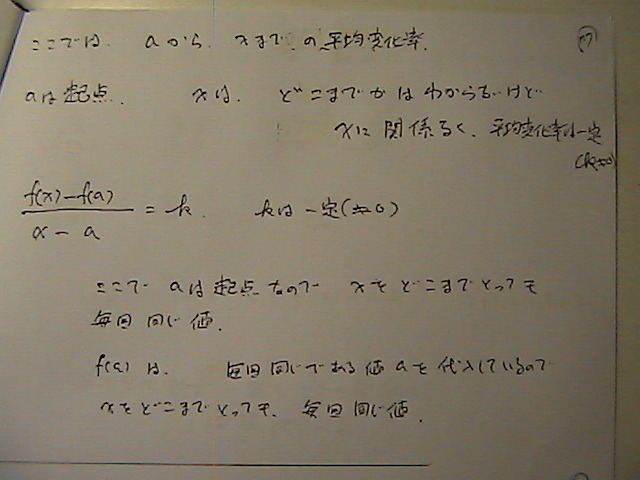 ここでは、 aから、 xまで の平均変化率.
aは起点. xは、 どこまでかはわからないけど
xに関係なく、平均変化率は一定
(k≠0)
f(x)-f(a)
x - a
= k. kは一定(≠0)
ここで aは起点なので xをどこまでとっても
毎回同じ値.
f(a)は、 毎回同じである値aを代入しているので
xをどこまでとっても、毎回同じ値.